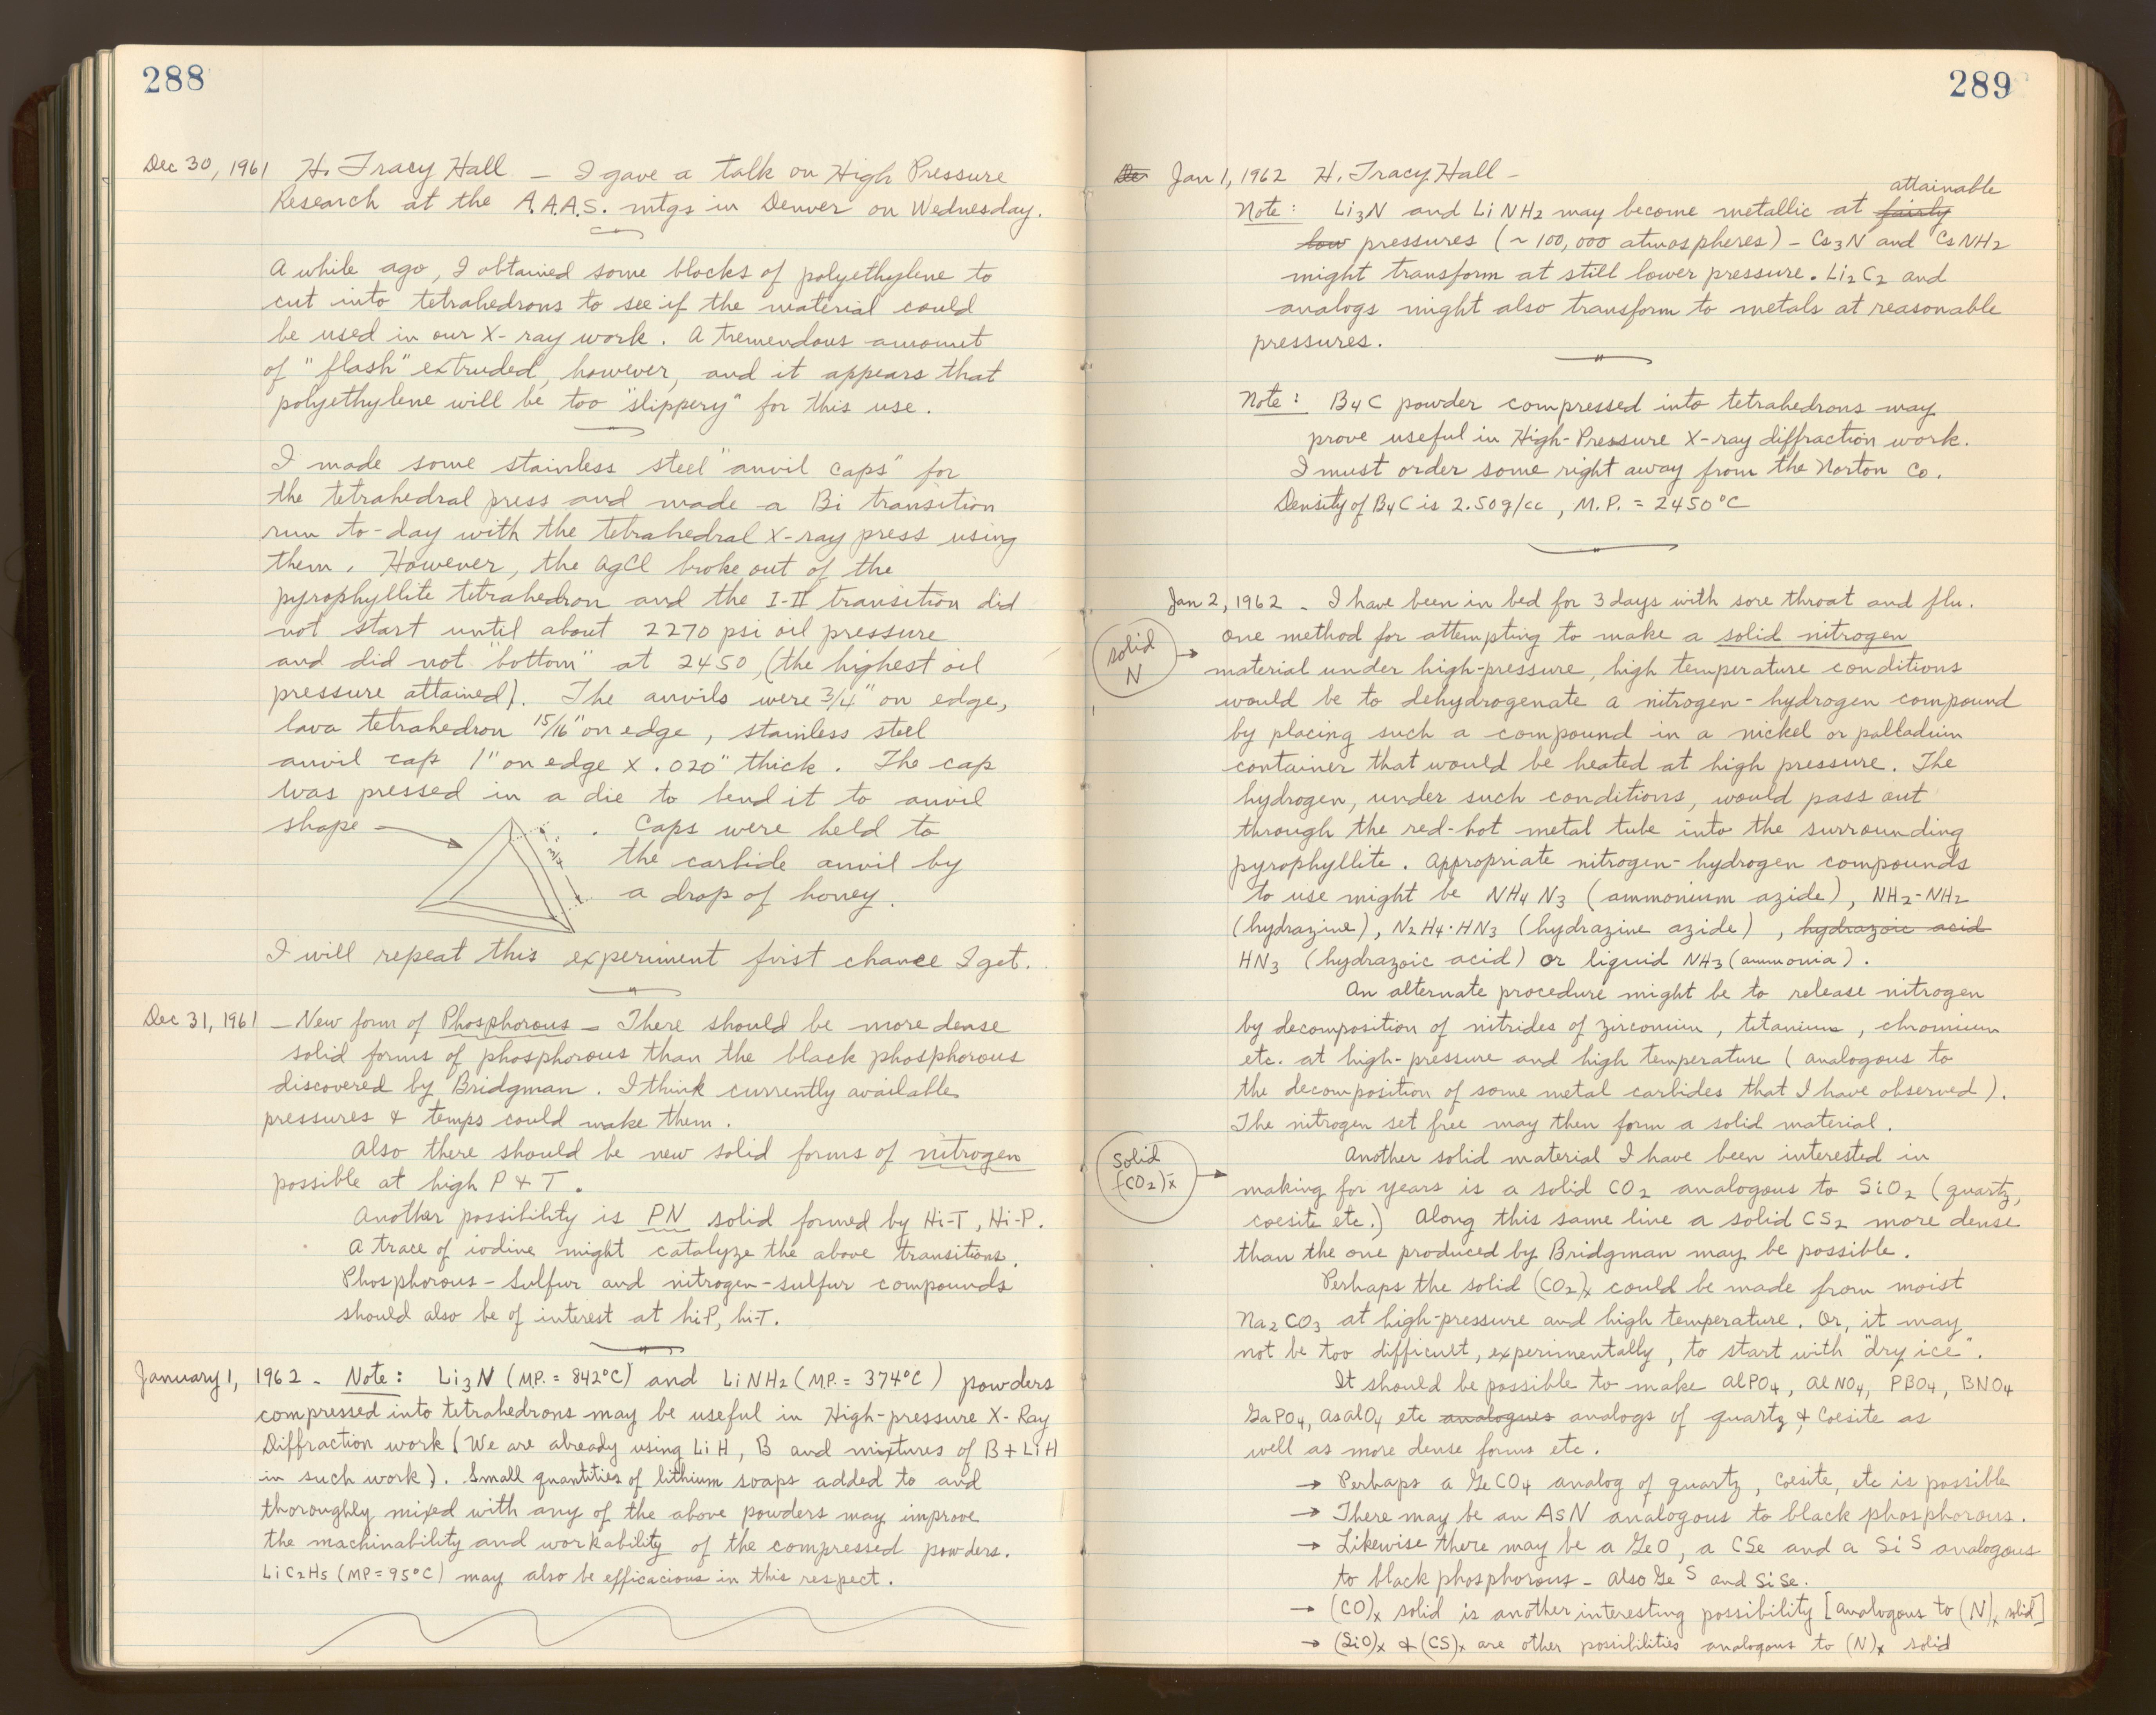 288
Dec 30, 1961 H. Tracy Hall – I gave a talk on High Pressure
Research at the A.A.A.S. mtgs in Denver on Wednesday.
A while ago, I obtained some blocks of polyethylene to
cut into tetrahedrons to see if the material could
be used in our X-ray work. A tremendous amount
of "flash" extruded, however, and it appears that
polyethylene will be too "slippery" for this use.
I made some stainless steel "anvil caps" for
the tetrahedral press and made a Bi transition
run to-day with the tetrahedral X-ray press using
them. However, the AgCl broke out of the
pyrophyllite tetrahedron and the I-II transition did
not start until about 2270 psi oil pressure
and did not "bottom" at 2450, (the highest oil
pressure attained). The anvils were 3/4" on edge,
lava tetrahedron 15/16" on edge, stainless steel
anvil cap 1" on edge X .020" thick. The cap
was pressed in a die to bend it to anvil
shape . Caps were held to
3/4
the carbide anvil by
a drop of honey.
I will repeat this experiment first chance I get.
Dec 31, 1961 – New form of Phosphorous – There should be more dense
solid forms of phosphorous than the black phosphorous
discovered by Bridgman. I think currently available
pressures & temps could make them.
Also there should be new solid forms of nitrogen
possible at high P & T.
Another possibility is PN solid formed by Hi-T, Hi-P.
A trace of iodine might catalyze the above transitions.
Phosphorous – Sulfur and nitrogen-sulfur compounds
should also be of interest at hiP, hi-T.
January 1, 1962 – Note: Li3N (M.P. = 842°C) and LiNH2 (M.P. = 374°C) powders
compressed into tetrahedrons may be useful in High-pressure X-Ray
Diffraction work (We are already using LiH, B and mixtures of B + LiH
in such work). Small quantities of lithium soaps added to and
thoroughly mixed with any of the above powders may improve
the machinability and workability of the compressed powders.
LiC2H5 (MP = 95°C) may also be efficacious in this respect.
289
De Jan 1, 1962 H. Tracy Hall –
attainable
Note: Li3N and LiNH2 may become metallic at fairly
low pressures (~ 100,000 atmospheres) – Cs3N and CsNH2
might transform at still lower pressure. Li2C2 and
analogs might also transform to metals at reasonable
pressures.
Note: B4C powder compressed into tetrahedrons may
prove useful in High-Pressure X-ray diffraction work.
I must order some right away from the Norton Co.
Density of B4C is 2.50g/cc, M.P. = 2450°C
Jan 2, 1962 – I have been in bed for 3 days with sore throat and flu.
solid
N
One method for attempting to make a solid nitrogen
material under high-pressure, high temperature conditions
would be to dehydrogenate a nitrogen-hydrogen compound
by placing such a compound in a nickel or palladium
container that would be heated at high pressure. The
hydrogen, under such conditions, would pass out
through the red-hot metal tube into the surrounding
pyrophyllite. Appropriate nitrogen-hydrogen compounds
to use might be NH4N3 (ammonium azide), NH2-NH2
(hydrazine), N2H4·HN3 (hydrazine azide), hydrazoic acid
HN3 (hydrazoic acid) or liquid NH3 (ammonia).
An alternate procedure might be to release nitrogen
by decomposition of nitrides of zirconium, titanium, chromium
etc. at high-pressure and high temperature (analogous to
the decomposition of some metal carbides that I have observed).
The nitrogen set free may then form a solid material.
Solid
(CO2)x
Another solid material I have been interested in
making for years is a solid CO2 analogous to SiO2 (quartz,
coesite etc.) Along this same line a solid CS2 more dense
than the one produced by Bridgman may be possible.
Perhaps the solid (CO2)x could be made from moist
Na2CO3 at high-pressure and high temperature. Or, it may
not be too difficult, experimentally, to start with "dry ice".
It should be possible to make AlPO4, AlNO4, PBO4, BNO4
GaPO4, AsAlO4 etc analogues analogs of quartz & Coesite as
well as more dense forms etc.
→ Perhaps a GeCO4 analog of quartz, Coesite, etc is possible
→ There may be an AsN analogous to black phosphorous.
→ Likewise there may be a GeO, a CSe and a SiS analogous
to black phosphorous – Also GeS and SiSe.
→ (CO)x solid is another interesting possibility [analogous to (N)x solid]
→ (SiO)x & (CS)x are other possibilities analogous to (N)x solid